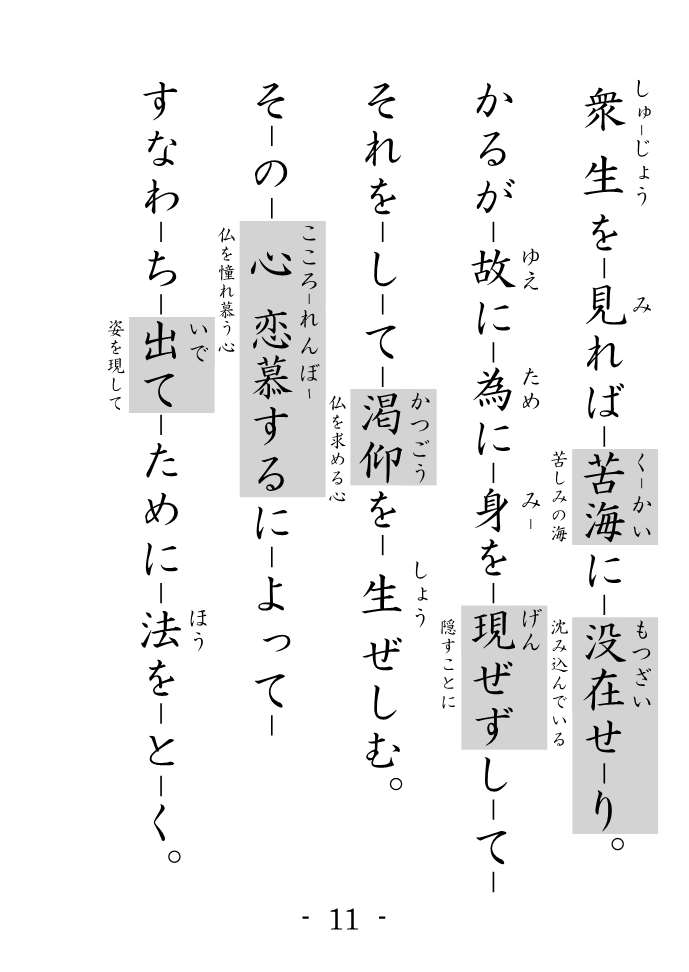 しゅーじょう み くーかい もつざい
衆生をー見ればー苦海にー没在せーり。
苦しみの海 沈み込んでいる
ゆえ ため みー げん
かるがー故にー為にー身をー現ぜずしーてー
隠すことに
かつごう しょう
それをーしーてー渇仰をー生ぜしむ。
仏を求める心
こころーれんぼー
そーのー心恋慕するにーよってー
仏を憧れ慕う心
いで ほう
すなわーちー出てーためにー法をーとーく。
姿を現して
- 11 -